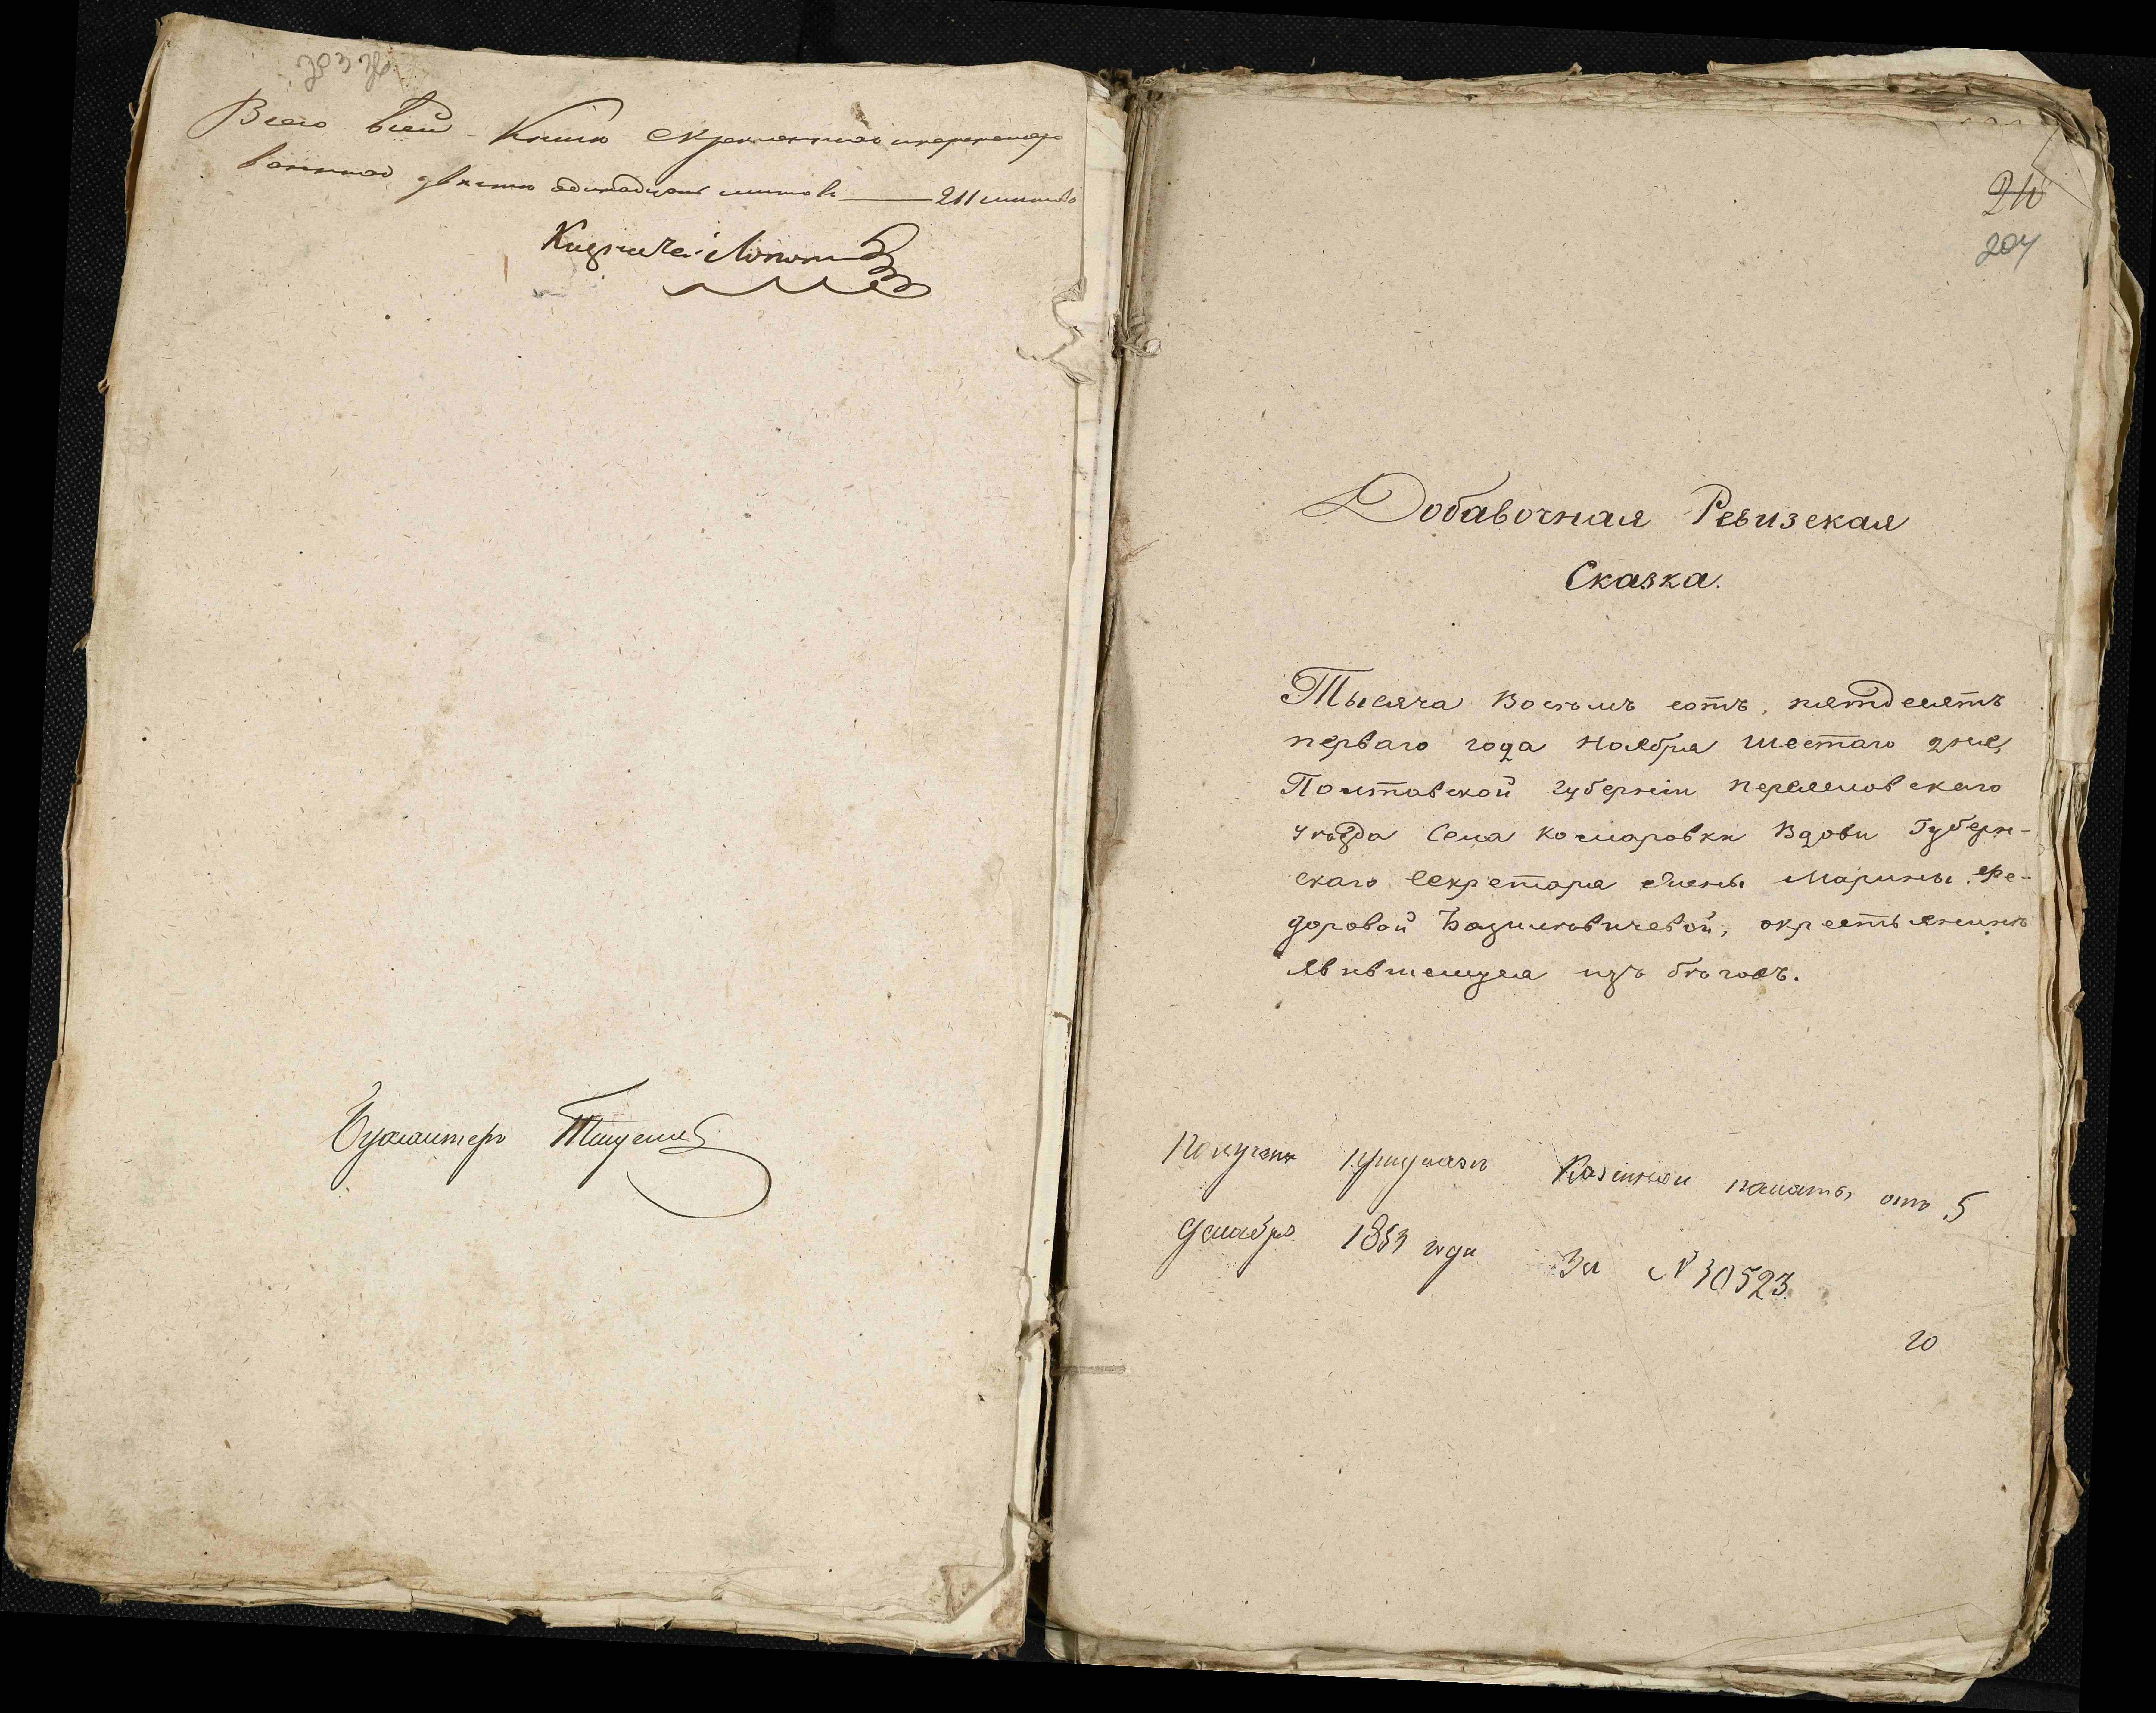 Всего в сей Книге скрепленных и перенумеро
ванных двести одинадцать листовъ — 211 листовъ
Казначей
Бухгалтеръ
211
204
Добавочная Ревизская
Сказка.
Тысяча Восемъ сотъ, пятдесятъ
перваго года Ноября Шестаго дня,
Полтавской губерніи переяславскаго
уезда Села Комаровки Вдови Губерн-
скаго Секретаря Марины Фе-
доровой Базилевичевой, окрестьянине
явившемуся изъ беговъ.
При указе Казенной палаты отъ 5
декабря 1853 года За № 30523.